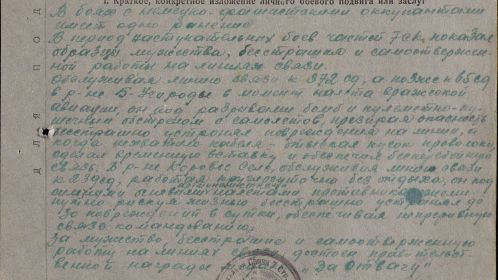 I. Краткое, конкретное изложение личного боевого подвига или заслуг
В боях с немецко-фашистскими оккупантами
имеет одно ранение.
В период наступательных боев частей 7 ск, показал
образцы мужества, бесстрашия и самоотвержен-
ной работы на линиях связи.
Обслуживая линию связи к 372 сд, а позже к 65 сд
в р-не в момент налета вражеской
авиации, он под разрывами бомб и пулеметно-пу-
шечным обстрелом с самолетов, презирая опасность
бесстрашно устранял повреждения на линии, и
когда не хватило кабеля - отыскал кусок проволоки,
сделал временную вставку и обеспечил бесперебойную
связь. В р-не Коровье Село, обслуживая линию связи
к сд, работая без отдыха, он под
сильными огневыми налетами противника
рискуя жизнью бесстрашно устранял до
30 повреждений в сутки, обеспечивая непрерывную
связь командованию.
За мужество, бесстрашие и самоотверженную
работу на линиях связи достоин правительст-
венной награды "За отвагу"
ДЛЯ ПОД